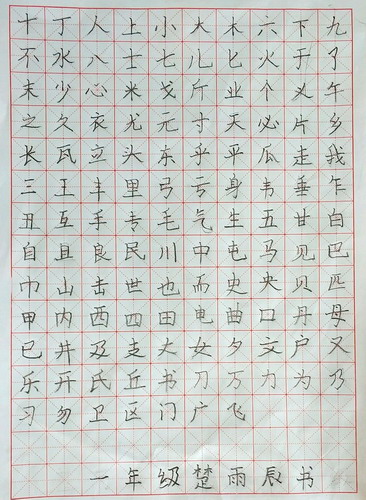 十丁人上小大木六下九
不水八士七儿匕火于了
末少心米戈斤业个义午
之久衣尤元寸天必片乡
长瓦立头东乎平瓜走我
三王丰里弓亏身韦垂乍
丑互手专毛气生五甘白
自且良民川中屯马见巴
巾山击世也而史央贝匹
甲内西四田电曲口丹母
巳井及走大女夕文户又
乐开氏丘书刀万力为乃
习勿卫区门广飞
一年级楚雨辰书